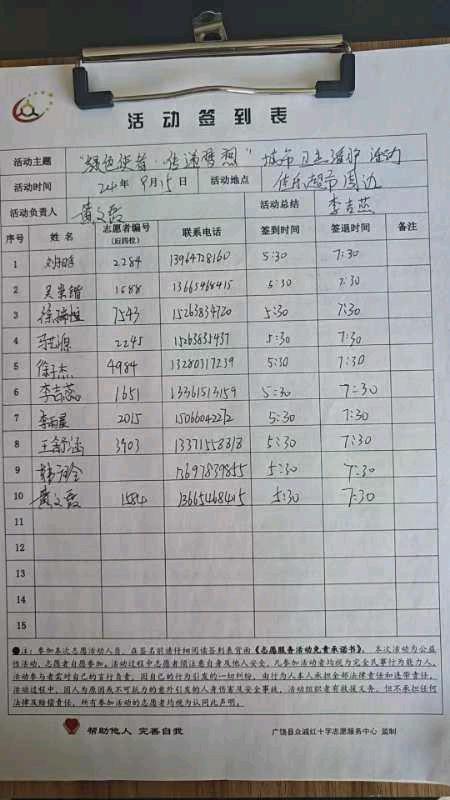 活动签到表
活动主题 "绿色使者·传递梦想"城市卫生活动
活动时间 24年9月15日 活动地点 佳乐超市周边
活动负责人 黄文霞 活动总结 李吉燕
序号 姓名 志愿者编号(后四位) 联系电话 签到时间 签退时间 备注
1 2284 13964728160 5:30 7:30
2 1688 13665468415 5:30 7:30
3 7543 15263834720 5:30 7:30
4 2245 15263835437 5:30 7:30
5 徐子杰 4984 13280317239 5:30 7:30
6 李吉燕 1651 13361513159 5:30 7:30
7 2015 15066042272 5:30 7:30
8 王舒涵 3903 13371558818 5:30 7:30
9 17697839855 5:30 7:30
10 黄文霞 1584 13665468415 5:30 7:30
11
12
13
14
15
●注：参加本次志愿活动人员，在签名前请仔细阅读签到表背面《志愿服务活动免责承诺书》。本次活动为公益
性活动，志愿者自愿参加。活动过程中志愿者须注意自身及他人安全。凡参加活动者均视为完全民事行为能力人。
活动参与者需对自己的言行负责，因自己的行为引发的一切纠纷，由行为人本人承担全部法律责任和连带责任。
活动过程中，因人为原因或不可抗力的意外引发的人身伤害及安全事故，活动组织者有救援义务，但不承担任何
法律及赔偿责任。所有参加活动的志愿者均视为认同此声明。
帮助他人 完善自我 广饶县众诚红十字志愿服务中心 监制